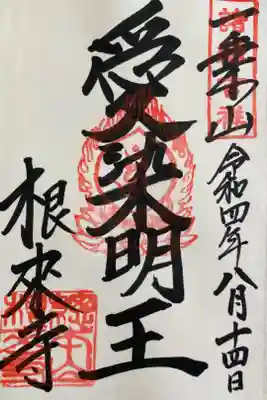 一乗山
令和四年八月十四日
愛染明王
根来寺